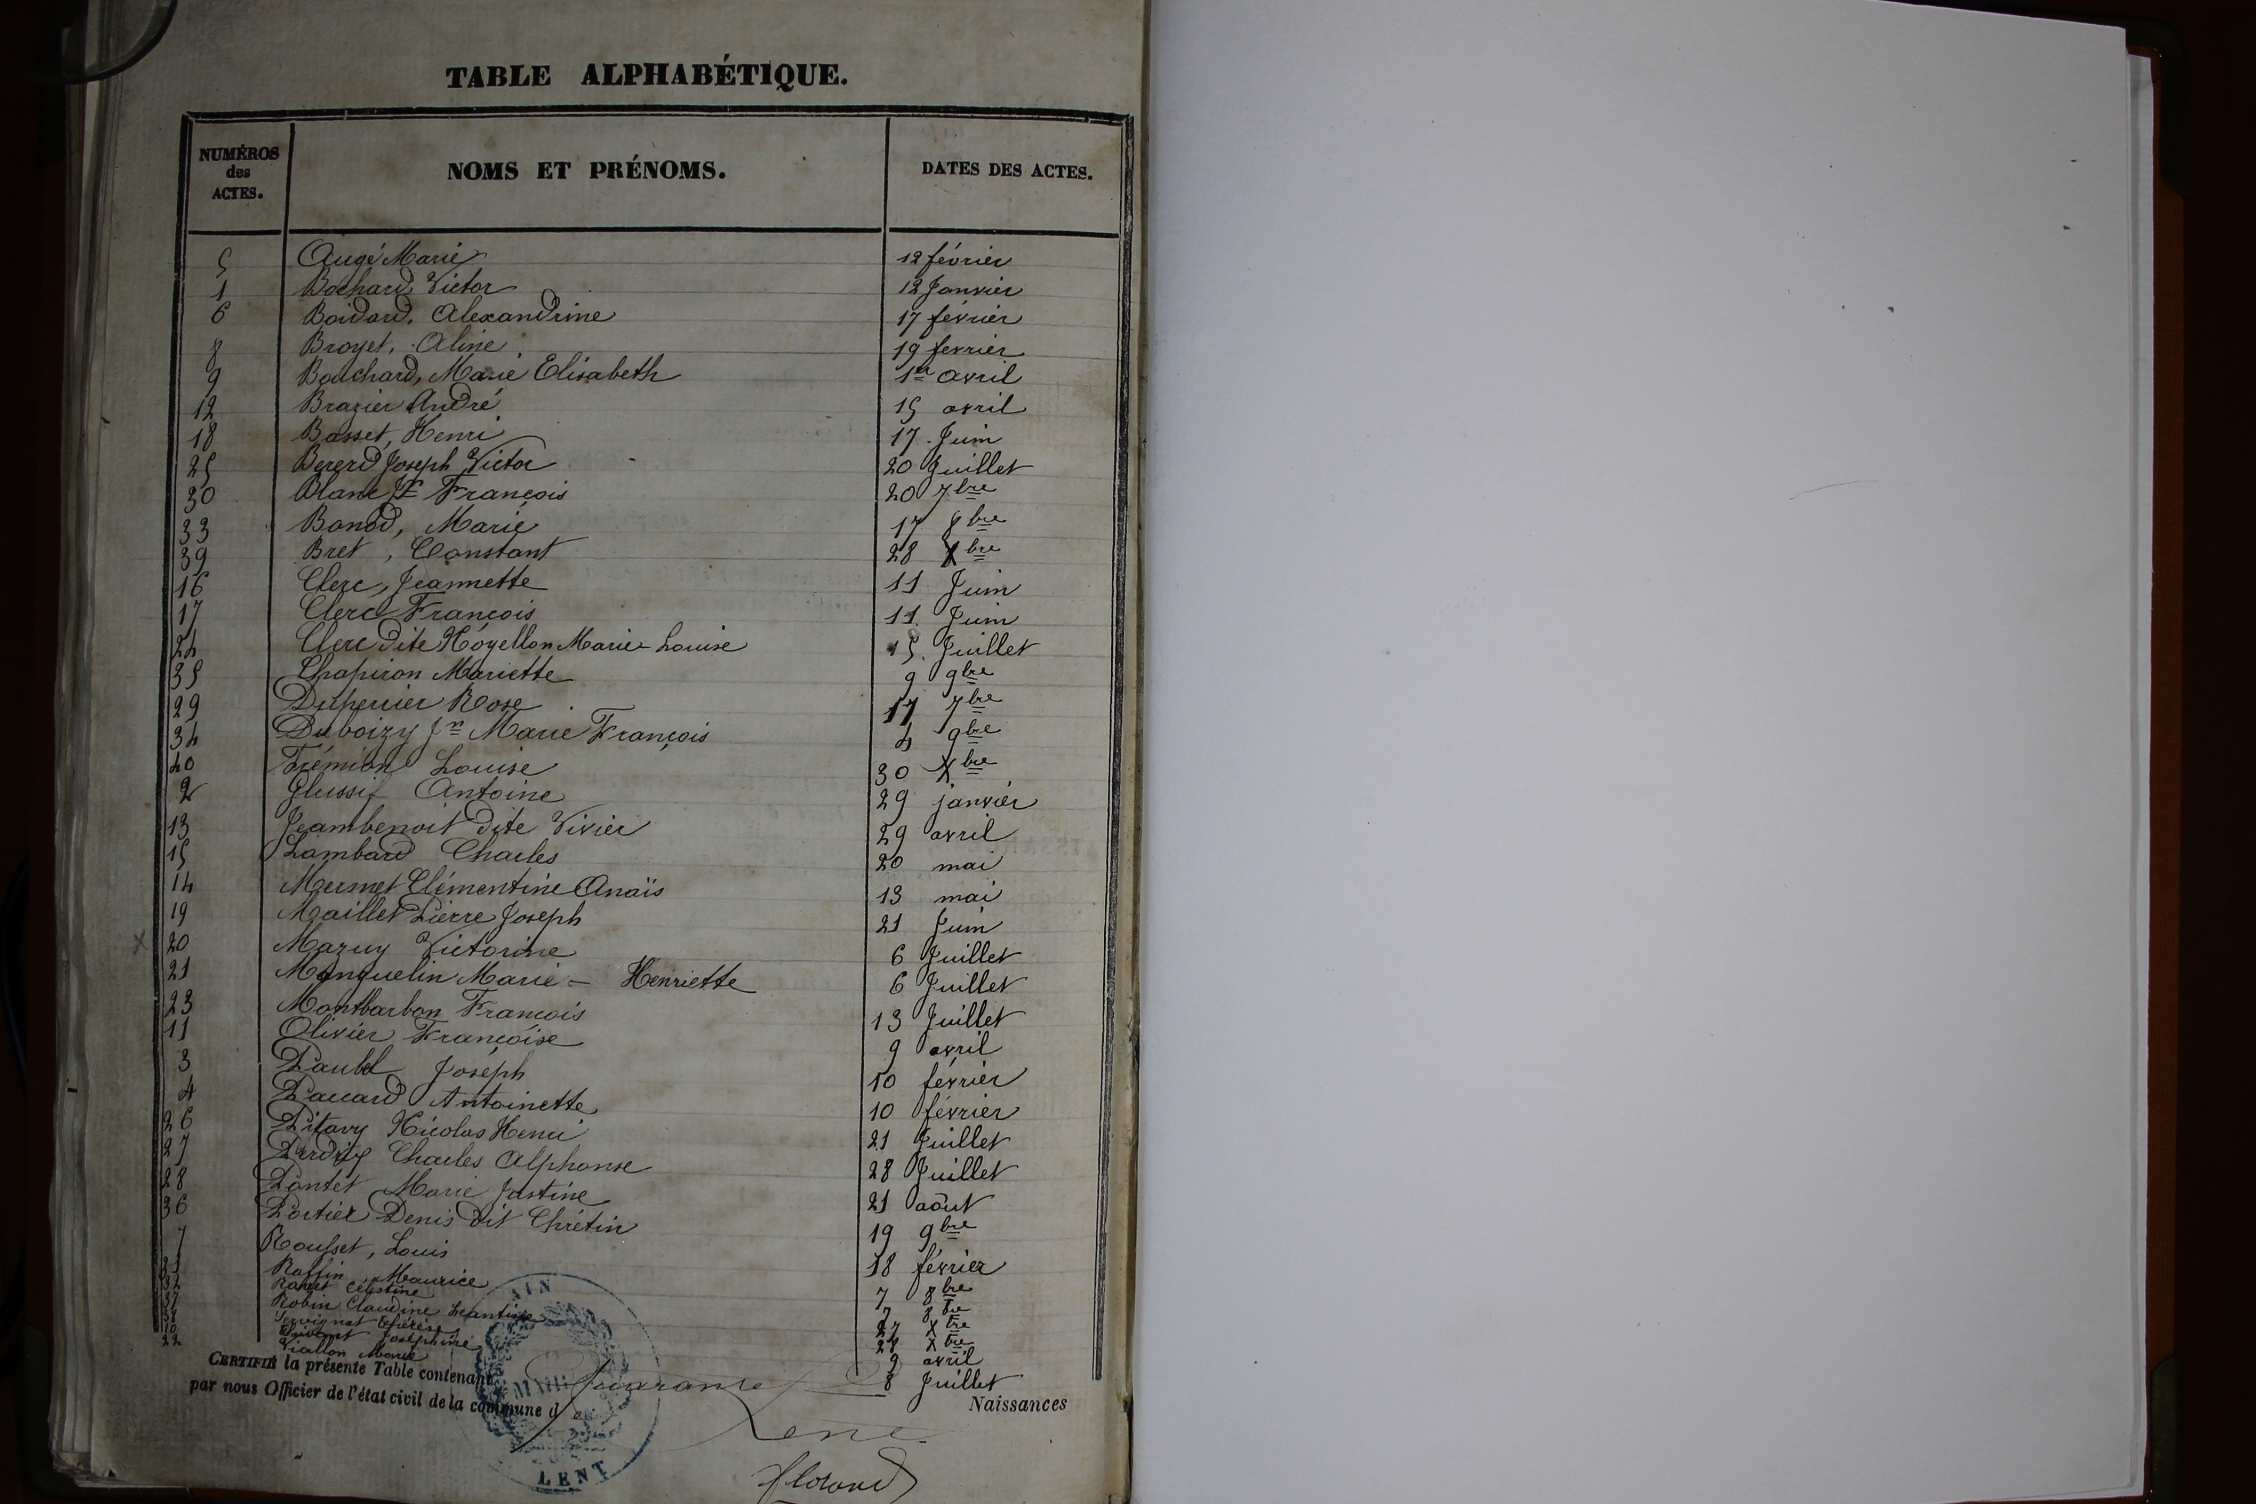 TABLE ALPHABÉTIQUE.
NUMÉROS des ACTES. NOMS ET PRÉNOMS. DATES DES ACTES.
5 Augé Marie 12 février
1 Bochard Victor 12 Janvier
6 Boidard, Alexandrine 17 février
8 Broyet, Aline 19 fevrier
9 Bouchard, Marie Elisabeth 1er avril
12 Brazier André 15 avril
18 Basset, Henri 17 Juin
25 Bererd Joseph Victor 20 Juillet
30 Blanc François 20 7bre
33 Bonod, Marie 17 8bre
39 Bret, Constant 28 Xbre
16 Clerc, Jeannette 11 Juin
17 Clerc François 11 Juin
24 Clerc dite Noyellon Marie Louise 15 Juillet
35 Chapiron Mariette 9 9bre
29 Duperrier Rose 17 7bre
34 Duboizy Jn Marie François 4 9bre
40 Frémion Louise 30 Xbre
2 Antoine 29 janvier
13 Jeambenoit dite Vivier 29 avril
15 Lombard Charles 20 mai
14 Mermet Clémentine Anaïs 13 mai
19 Maillet Pierre Joseph 21 Juin
X 20 Mazuy Victorine 6 Juillet
21 Manguelin Marie - Henriette 6 Juillet
23 Montbarbon François 13 Juillet
11 Olivier Françoise 9 avril
3 Joseph 10 février
4 Paccard Antoinette 10 février
26 Pitavy Nicolas Henri 21 Juillet
27 Charles Alphonse 28 Juillet
28 Pontet Marie Justine 21 août
36 Portier Denis dit Chrétin 19 9bre
7 Rousset, Louis 18 février
Raffin Maurice 7 8bre
32 Célestine 7 8bre
37 Robin Claudine Léantine 27 Xbre
38 28 Xbre
10 Joséphine 9 avril
22 Viallon Marie 8 Juillet
CERTIFIÉ la présente Table contenant Quarante Naissances
par nous Officier de l'état civil de la commune d
Lent
AIN
LENT